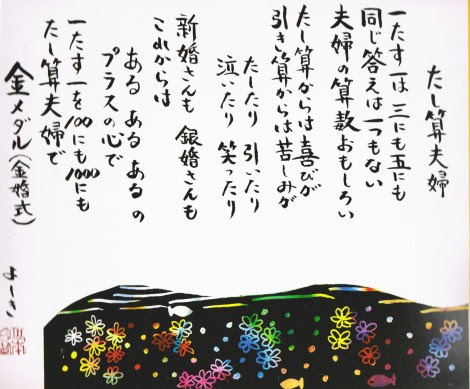 たし算夫婦
一たす一は 三にも五にも
同じ答えは一つもない
夫婦の算数おもしろい
たし算からは喜びが
引き算からは苦しみが
たしたり 引いたり
泣いたり 笑ったり
新婚さんも 銀婚さんも
これからは
ある ある あるの
プラスの心で
一たす一を100にも1000にも
たし算夫婦で
金メダル(金婚式)
よしき